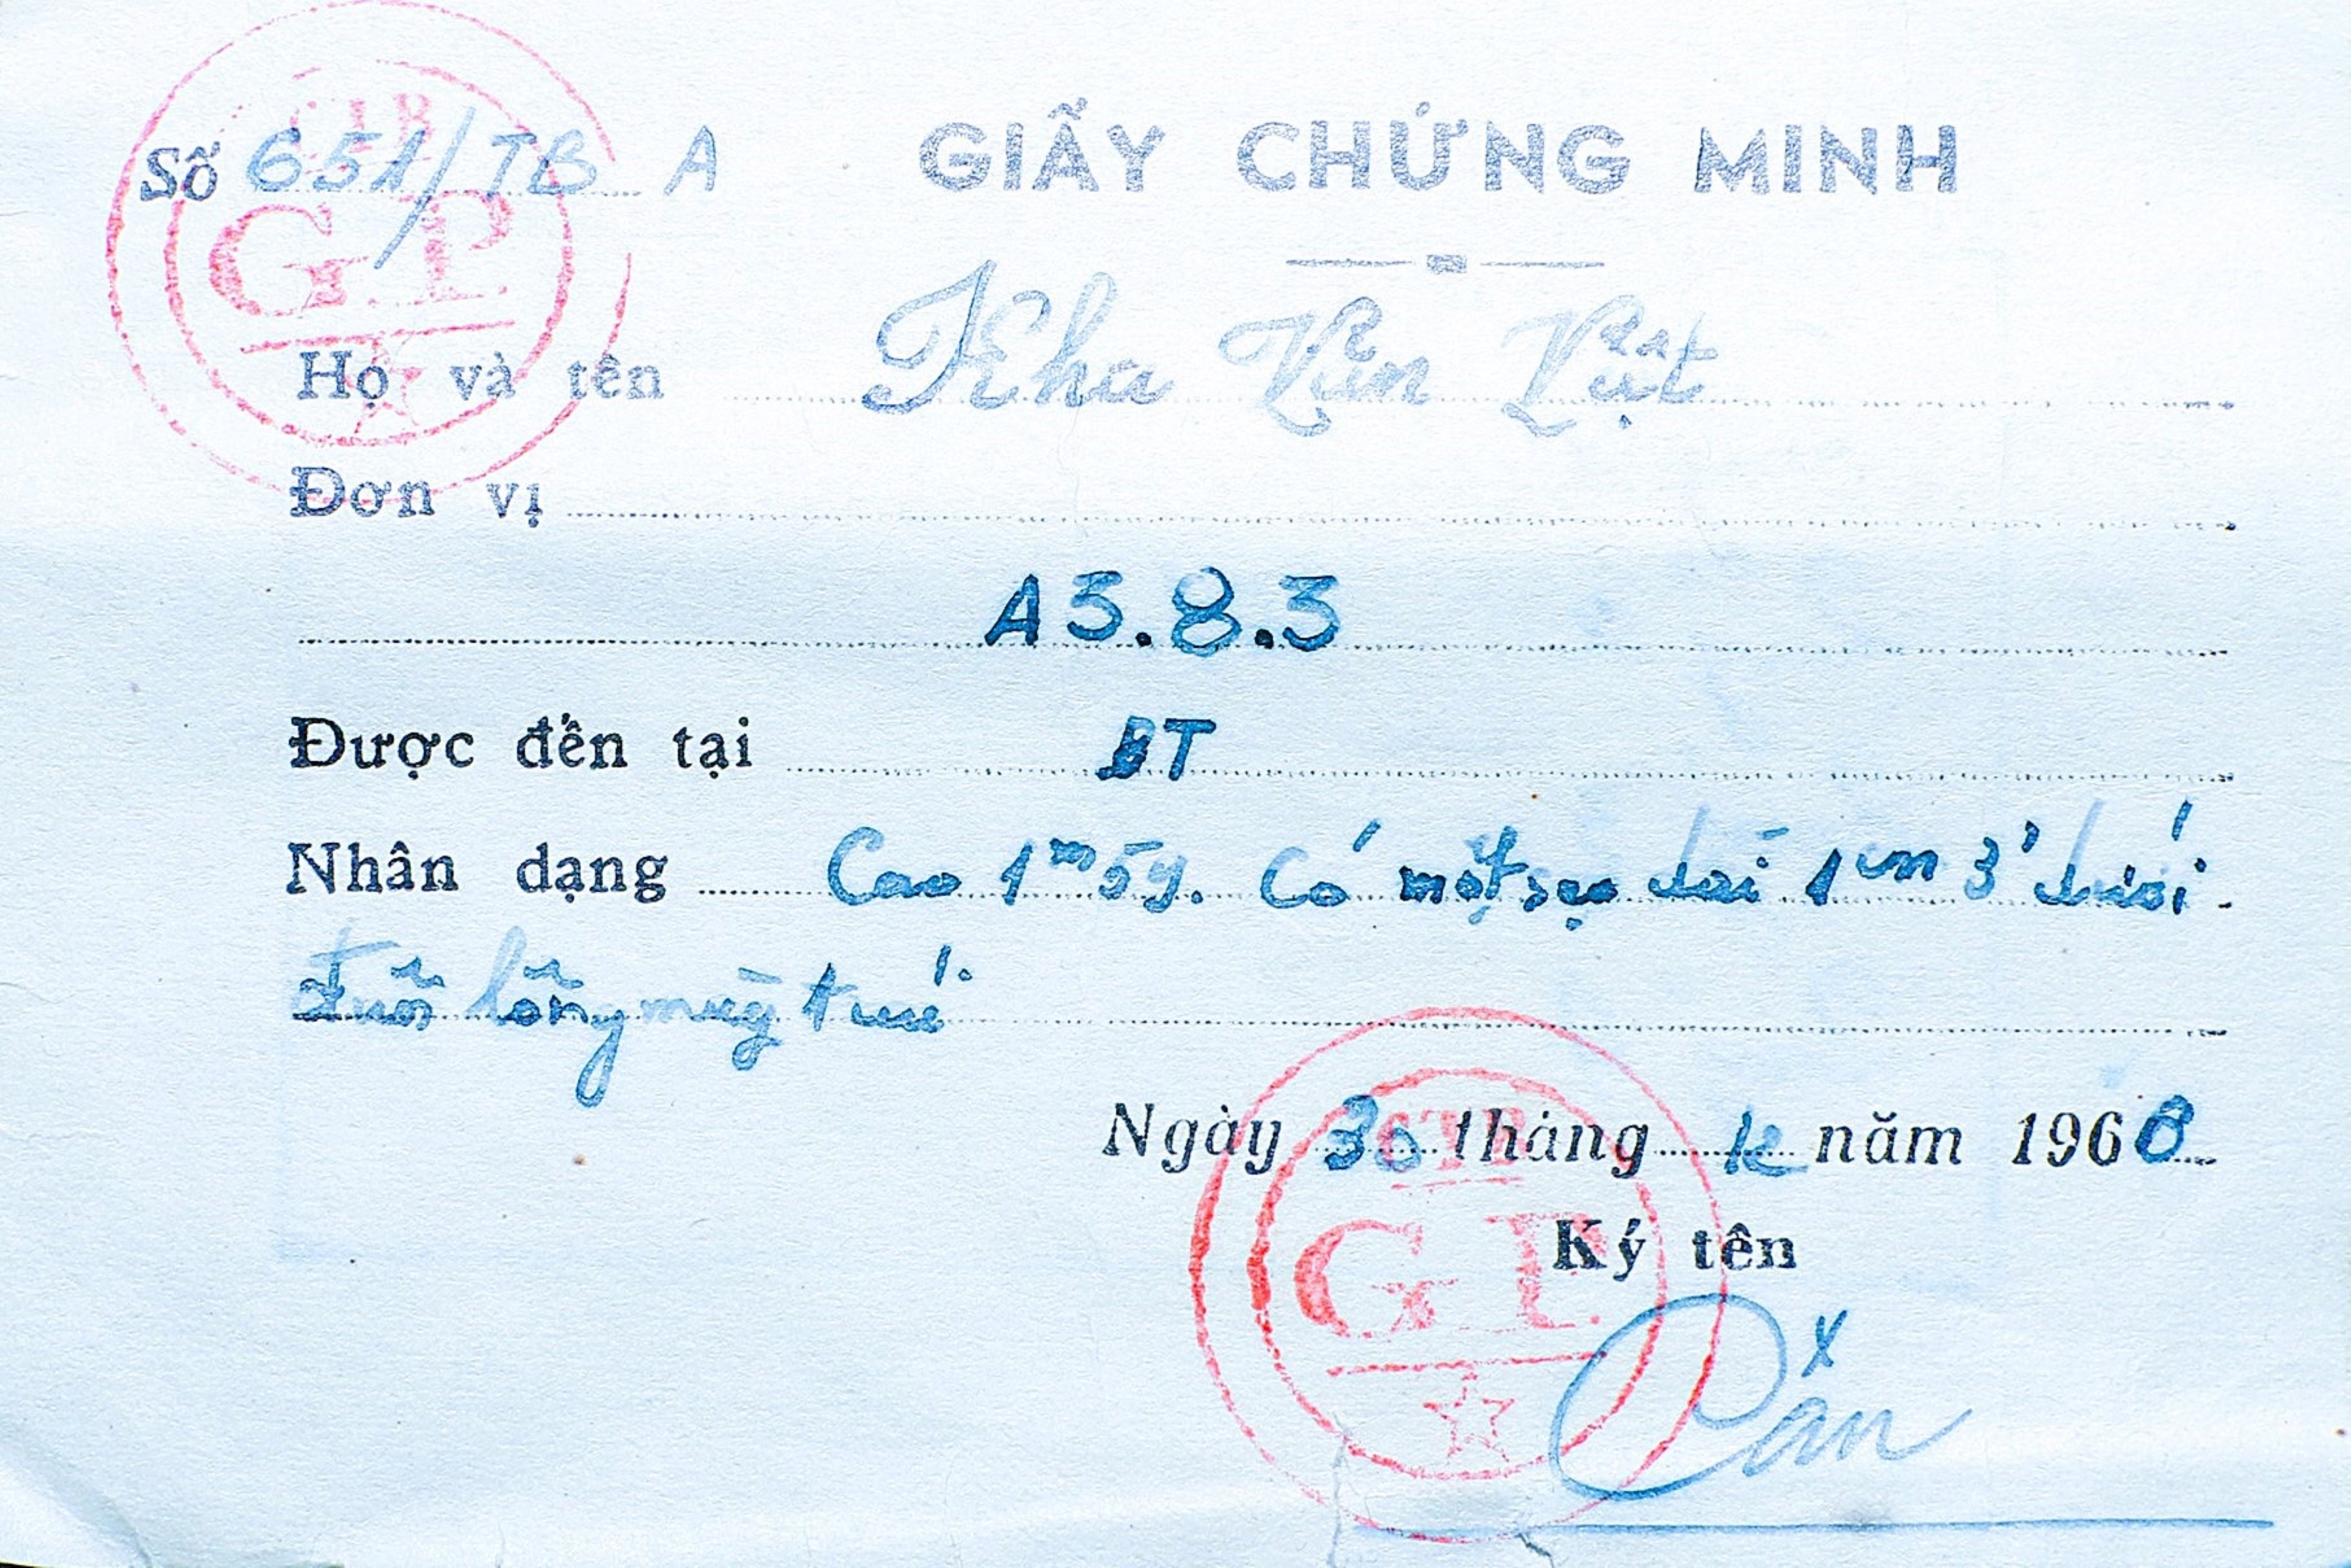 Số 651/TB A
GIẤY CHỨNG MINH
G.P
Họ và tên Khu Văn Vật
Đơn vị
A3.8.3
Được đến tại BT
Nhân dạng Cao 1m59. Có một sẹo dài 1cm 3 dưới
đuôi lông mày trái.
Ngày 30 tháng 12 năm 1968
Ký tên
G.P.